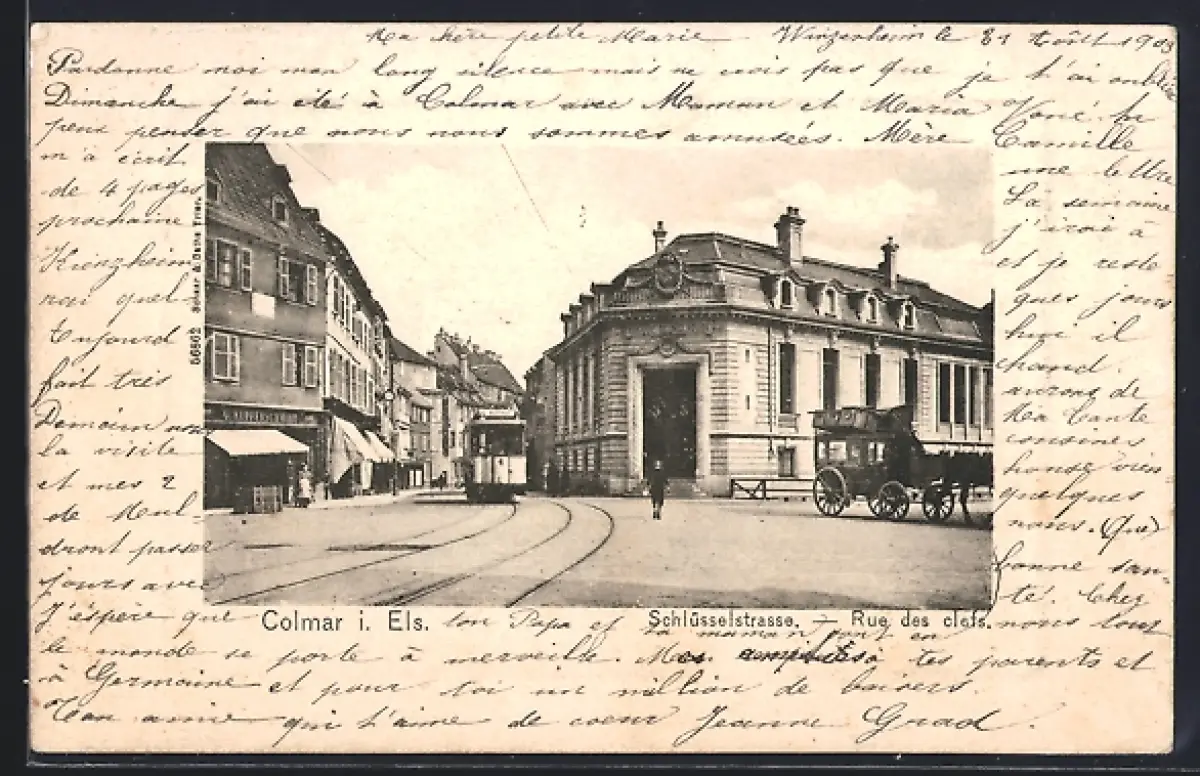 Ma chère petite Marie — Winzenheim le 31 Août 1903
Pardonne moi mon long silence mais ne crois pas que je t'ai oubliée
Dimanche j'ai été à Colmar avec Maman et Maria Tu
peux penser que nous nous sommes amusées. Mère Camille
m'a écrit une lettre
de 4 pages La semaine
prochaine j'irai à
Kienzheim et je reste
rai quel- ques jours
Aujourd hui il
fait très chaud.
Demain nous aurons de
la visite Ma tante
et mes 2 cousines
de Mul- house vien
dront passer quelques
jours avec nous.
J'espère que ton Papa et ta maman sont en bonne san-
te. Chez nous tout
le monde se porte à merveille. Mes amitiés à tes parents et
à Germaine et pour toi un million de baisers.
Ton amie qui t'aime de coeur Jeanne Grad.
56502 Schaar & Dathe Trier.
Colmar i. Els.
Schlüsselstrasse. — Rue des clefs.